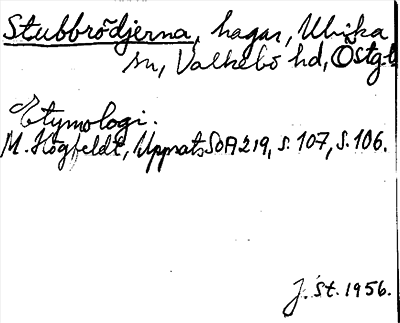 Stubbrödjerna, hagar, Ulrika
sn, Valkebo hd, Östg-l
Etymologi.
M. Högfeldt, Uppsats SOA 219, s. 107, s. 106.
J. St. 1956.